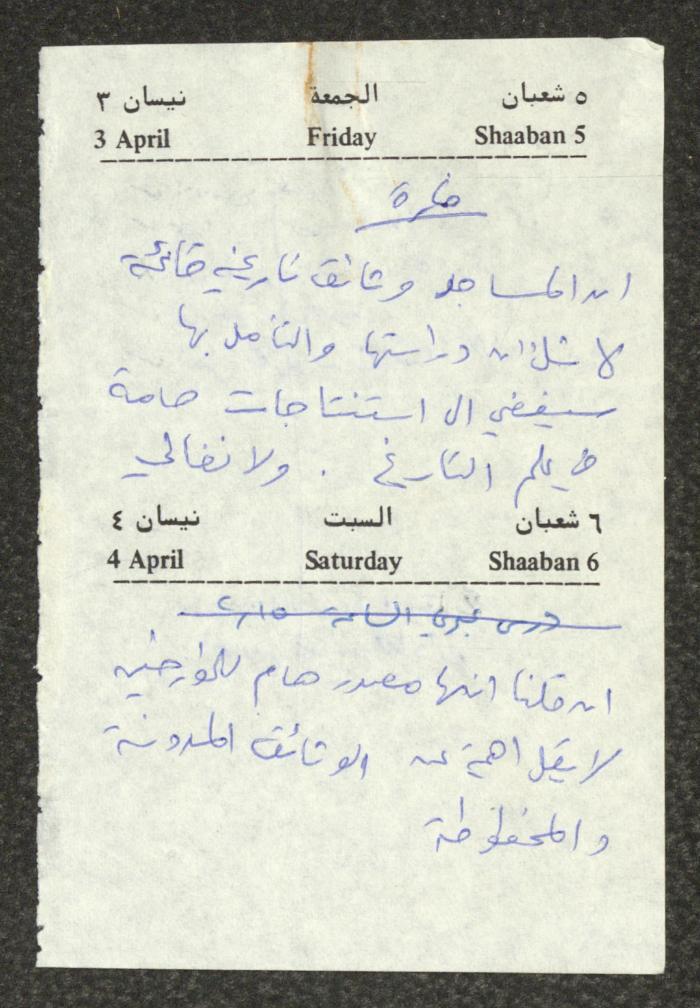 ٥ شعبان الجمعة نيسان ٣
3 April Friday Shaaban 5
فكرة
ان المساجد وثائق تاريخية قائمة
لا شك ان دراستها والتأمل بها
سيفضي الى استنتاجات هامة
في علم التاريخ . ولا نغالي
٦ شعبان السبت نيسان ٤
4 April Saturday Shaaban 6
درس الساعة
ان قلنا انها مصدر هام للمؤرخين
لا يقل اهمية عن الوثائق المدونة
والمحفوظة